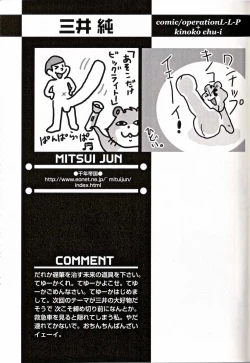 三井 純
comic/operationL-L-P
+
kinoko chu-i
「あそこ」だけ
ビッグライト!
ぱんぱらぱーん
ワンナップ
イエーイ!
キ
MITSUI JUN
●千年帝国●
http://www.eonet.ne.jp/~mituijun/
index.html
COMMENT
だれか遅筆を治す未来の道具を下さい。
てゆーかくれ。てゆーかよこせ。てゆ
ーかごめんなさい。てゆーかはじめま
して。次回のテーマが三井の大好物だ
そうで 次こそ締め切り前になんとか。
救急車を見ると隠れてしまう私。やだ
連れてかないで。おちんちんばんざい
イエーイ。